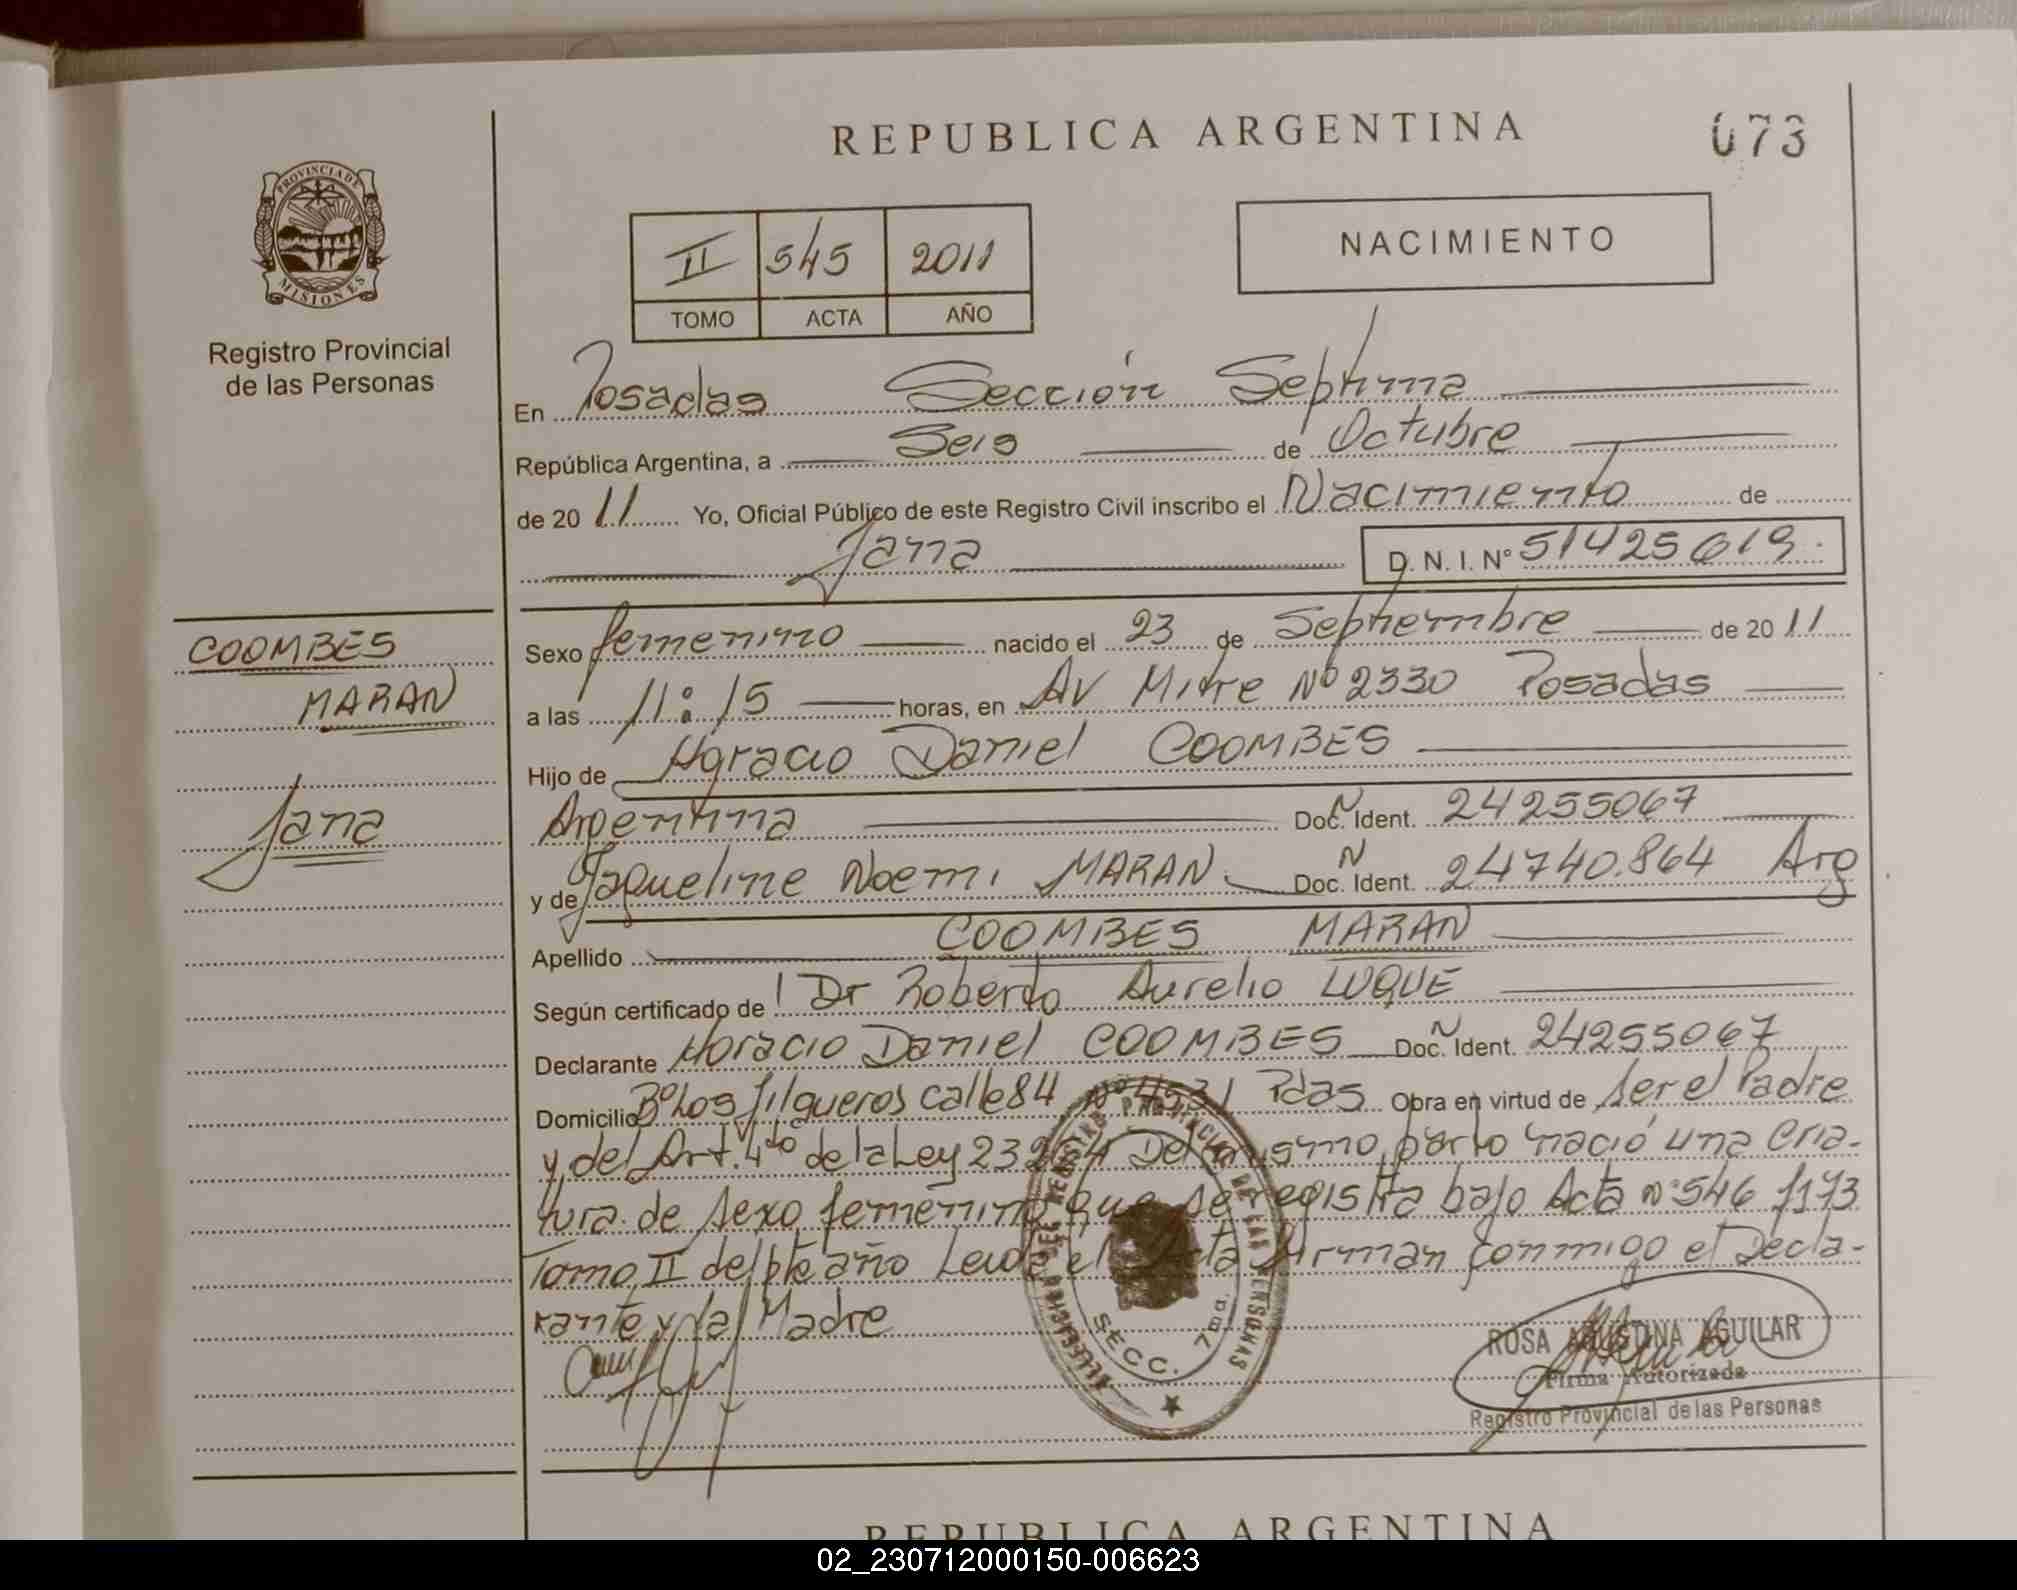 REPUBLICA ARGENTINA
073
PROVINCIA DE MISIONES
Registro Provincial
de las Personas
II 545 2011
TOMO ACTA AÑO
NACIMIENTO
En Posadas Sección Septima
República Argentina, a Seis de Octubre
de 2011 Yo, Oficial Público de este Registro Civil inscribo el Nacimiento de
Jana D.N.I. Nº 51425619.
COOMBES
MARAN
Jana
Sexo femenino nacido el 23 de Septiembre de 2011
a las 11:15 horas, en Av Mitre Nº 2330 Posadas
Hijo de Horacio Daniel COOMBES
Argentina Doc. Ident. 24255067
y de Jaqueline Noemi MARAN Doc. Ident. 24740.864 Arg
Apellido COOMBES MARAN
Según certificado de Dr Roberto Aurelio LUQUE
Declarante Horacio Daniel COOMBES Doc. Ident. 24255067
Domicilio Bº Los Jilgueros calle 84 Nº 4531 Pdas Obra en virtud de ser el Padre
y del Art. 4to de la Ley 23264 Del mismo parto nació una cria-
tura de sexo femenino que se registra bajo Acta nº 546 f173
Tomo II del pte año Leida el Acta firman conmigo el Decla-
rante y la Madre
REGISTRO PROVINCIAL DE LAS PERSONAS
SECC. 7ma.
ROSA AGUSTINA AGUILAR
Firma Autorizada
Registro Provincial de las Personas
REPUBLICA ARGENTINA
02_230712000150-006623